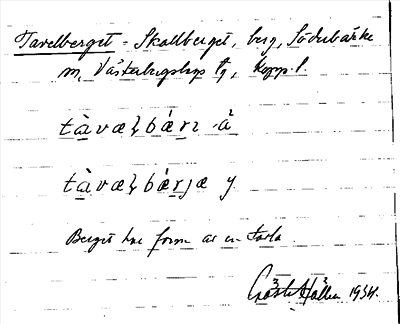 Tavelberget = Skallberget, berg, Söderbärke
sn, Västerbergslags tg, Kopp. l.
tàvæɭbá̀rɪ -å̀
tàvæɭbæ̀rjæ y
Berget har form av en tavla
Gösta Hållen 1934.